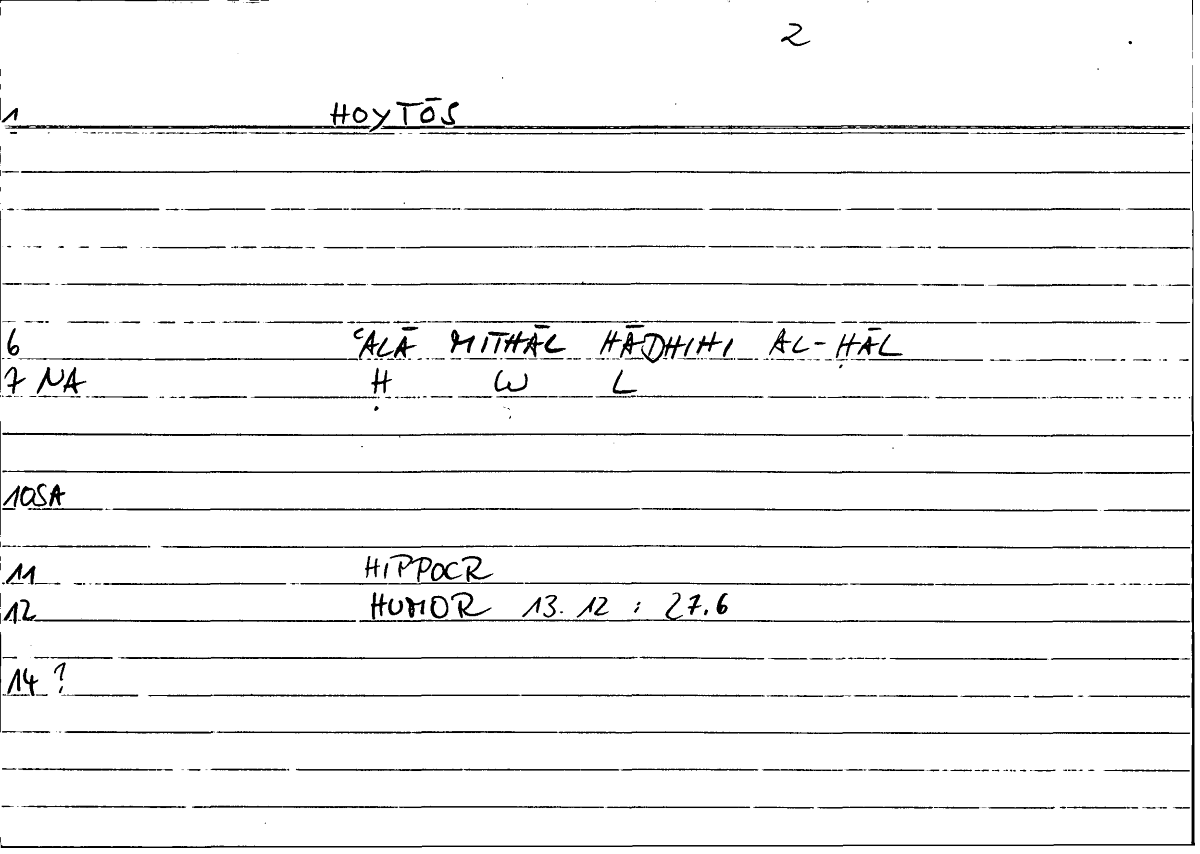 2
1 HOYTŌS
6 ʿALĀ MITHĀL HĀDHIHI AL-ḤĀL
7 NA Ḥ W L
10SA
11 HIPPOCR
12 HUMOR 13.12 : 27.6
14 ?